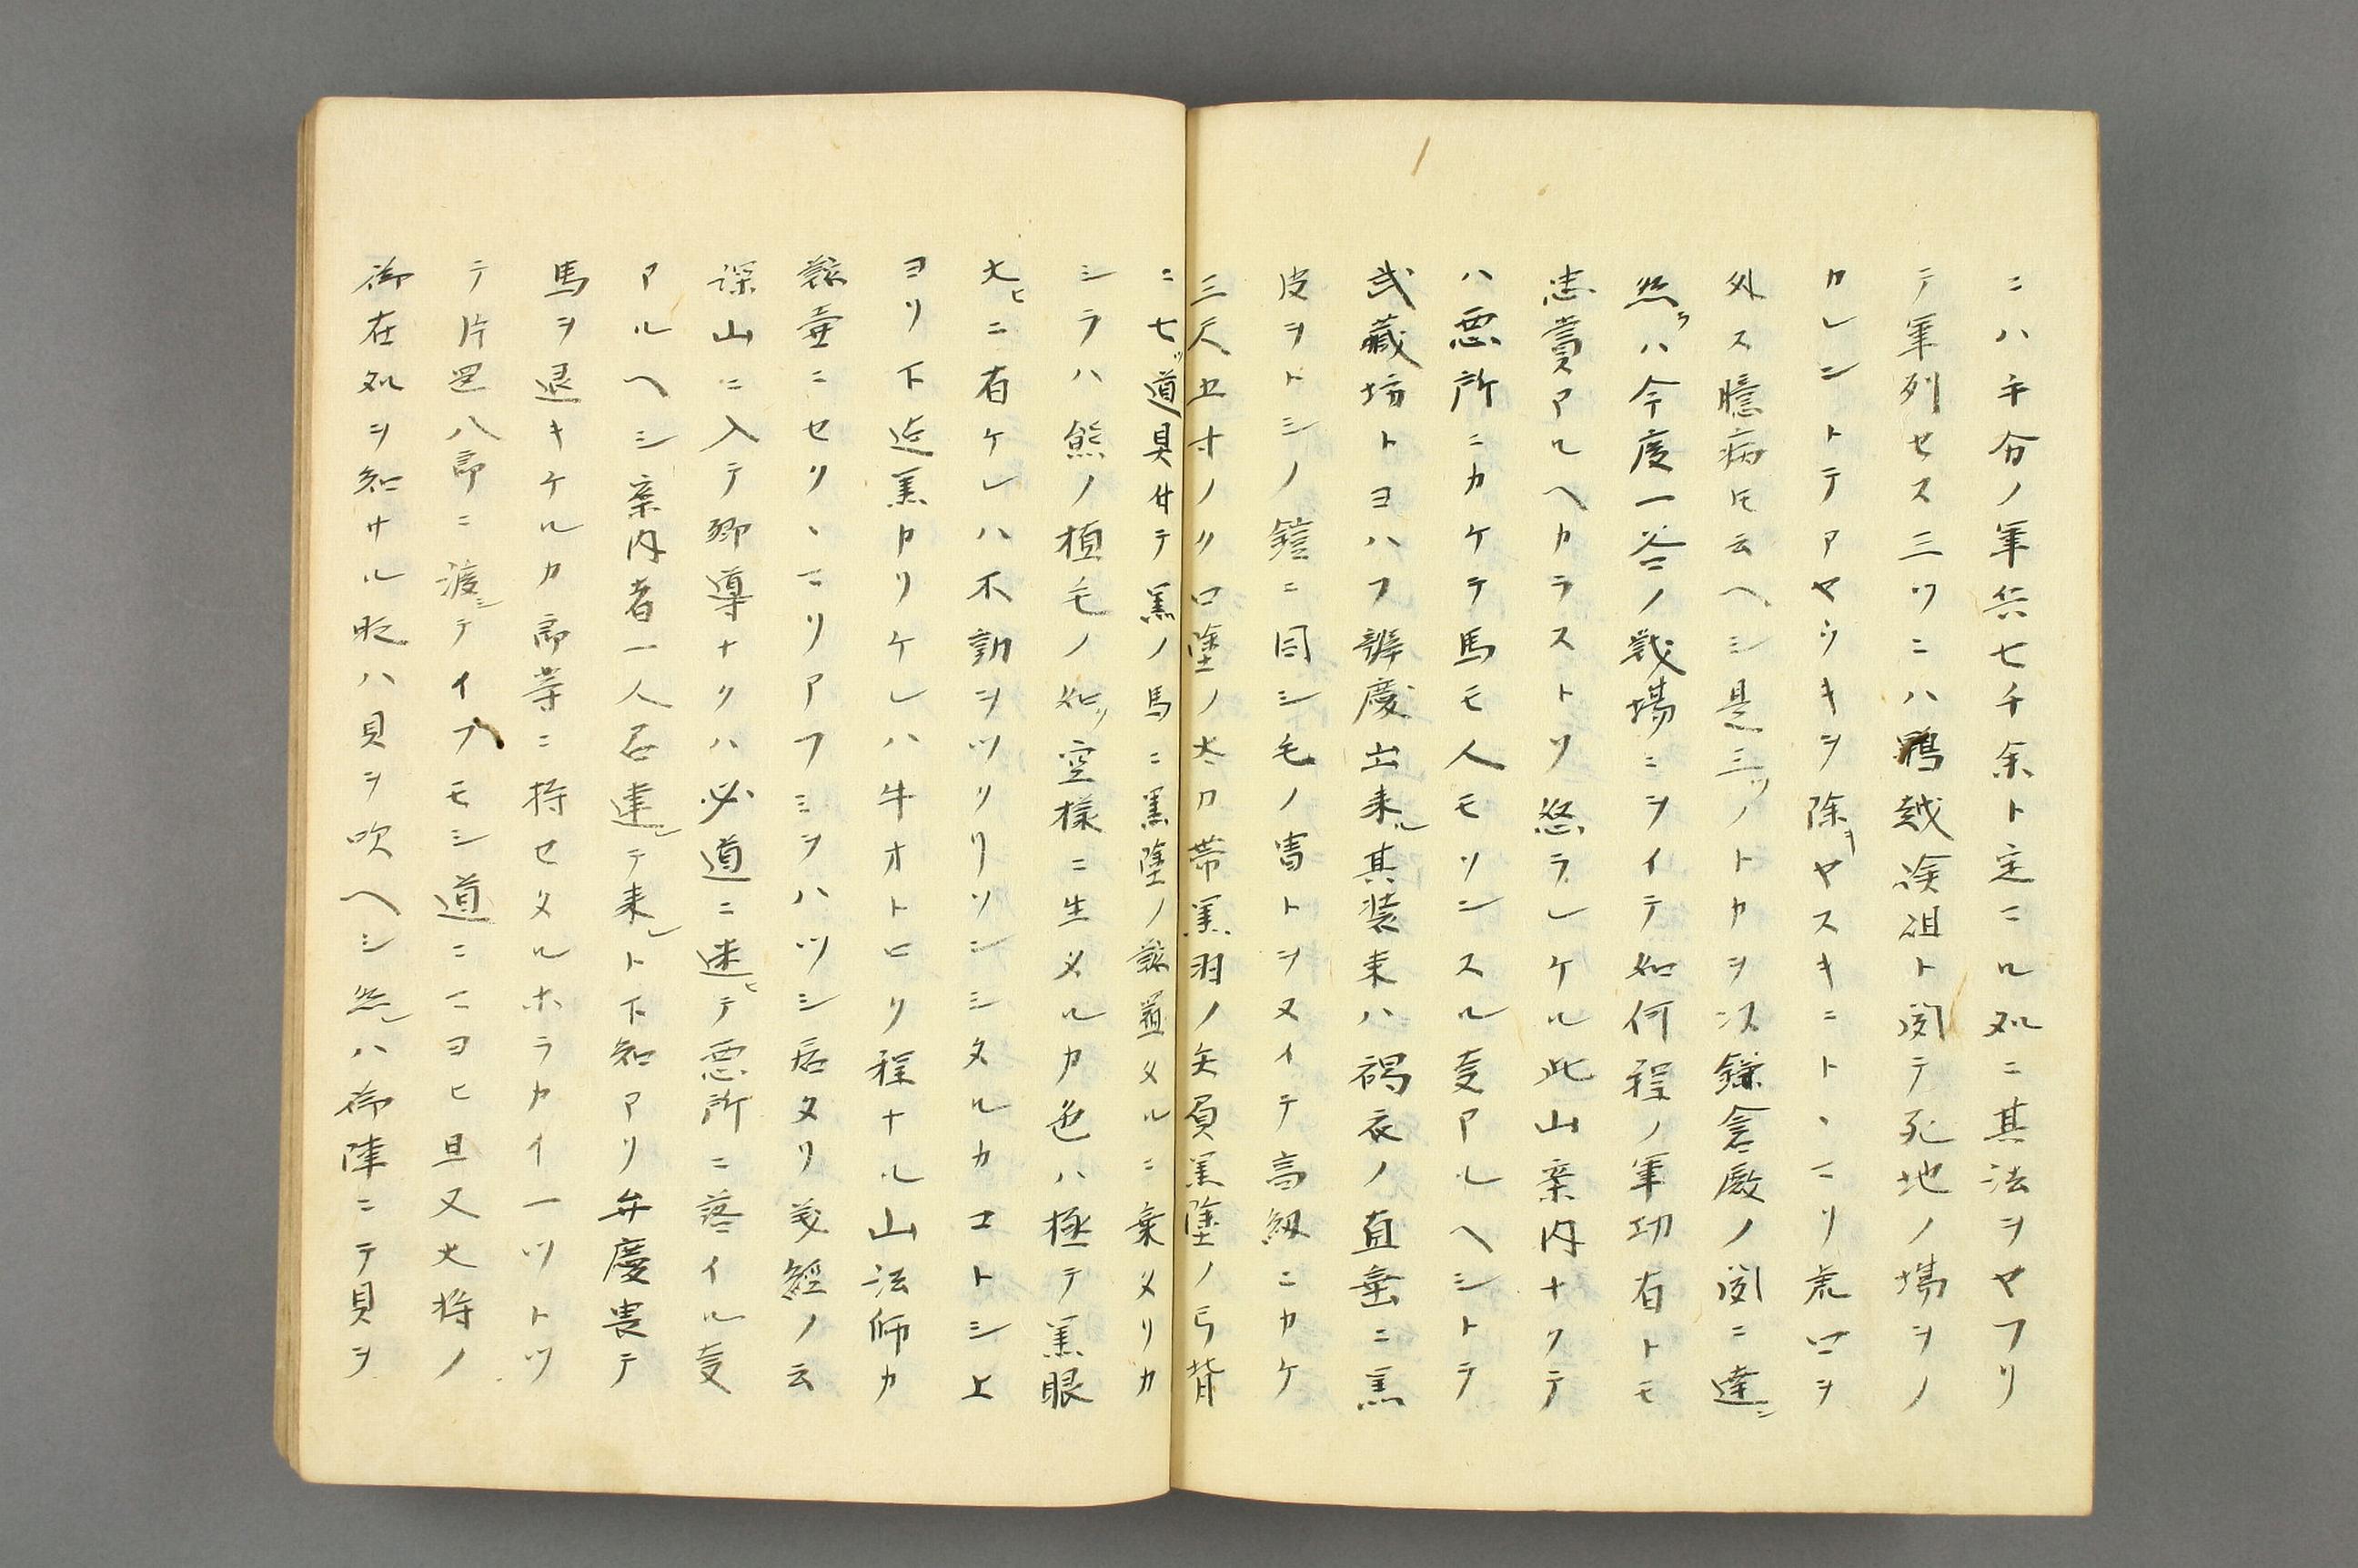 ニハ手分ノ軍兵七千余ト定ニル処ニ其法ヲヤフリ
テ軍列セス三ツニハ鴨越嶮岨ト聞テ死地ノ場ヲノ
カレントテアヤウキヲ除キヤスキニト、ニリ虎口ヲ
外ス臆病トモ云ヘシ是三ツノトカヲ以鎌倉殿ノ聞ニ達シ
然ラハ今度一谷ノ戦場ニヲイテ如何程ノ軍功有トモ
忠賞アルヘカラストソ怒ラレケル此山案内ナクテ
ハ悪所ニカケテ馬モ人モソンスル事アルヘシトテ
武蔵坊トヨハフ辨慶出来ル其装束ハ褐衣ノ直垂ニ黒
皮ヲトシノ鎧ニ同シ毛ノ冑トヲヌイテ高紐ニカケ
三尺五寸ノクロ塗ノ太刀帯黒羽ノ矢負黒塗ノ弓背
ニ七ツ道具付テ黒ノ馬ニ黒塗ノ鞍置タルニ乗タリカ
シラハ熊ノ植毛ノ如ク空様ニ生タルカ色ハ極テ黒眼
大ヒニ有ケレハ不動ヲツクリソンシタルカコトシ上
ヨリ下迄黒カリケレハ牛オトロク程ナル山法師カ
鞍壷ニセク、ニリアフミヲハツシ居タリ義経ノ云
深山ニ入テ郷導ナクハ必道ニ迷ヒテ悪所ニ落イル事
アルヘシ案内者一人召連レテ来レト下知アリ弁慶畏テ
馬ヲ退キケルカ郎等ニ持セタルホラカイ一ツトツ
テ片岡八郎ニ渡シテイフモシ道ニニヨヒ且又大将ノ
御在処ヲ知サル時ハ貝ヲ吹ヘシ然レハ御陣ニテ貝ヲ